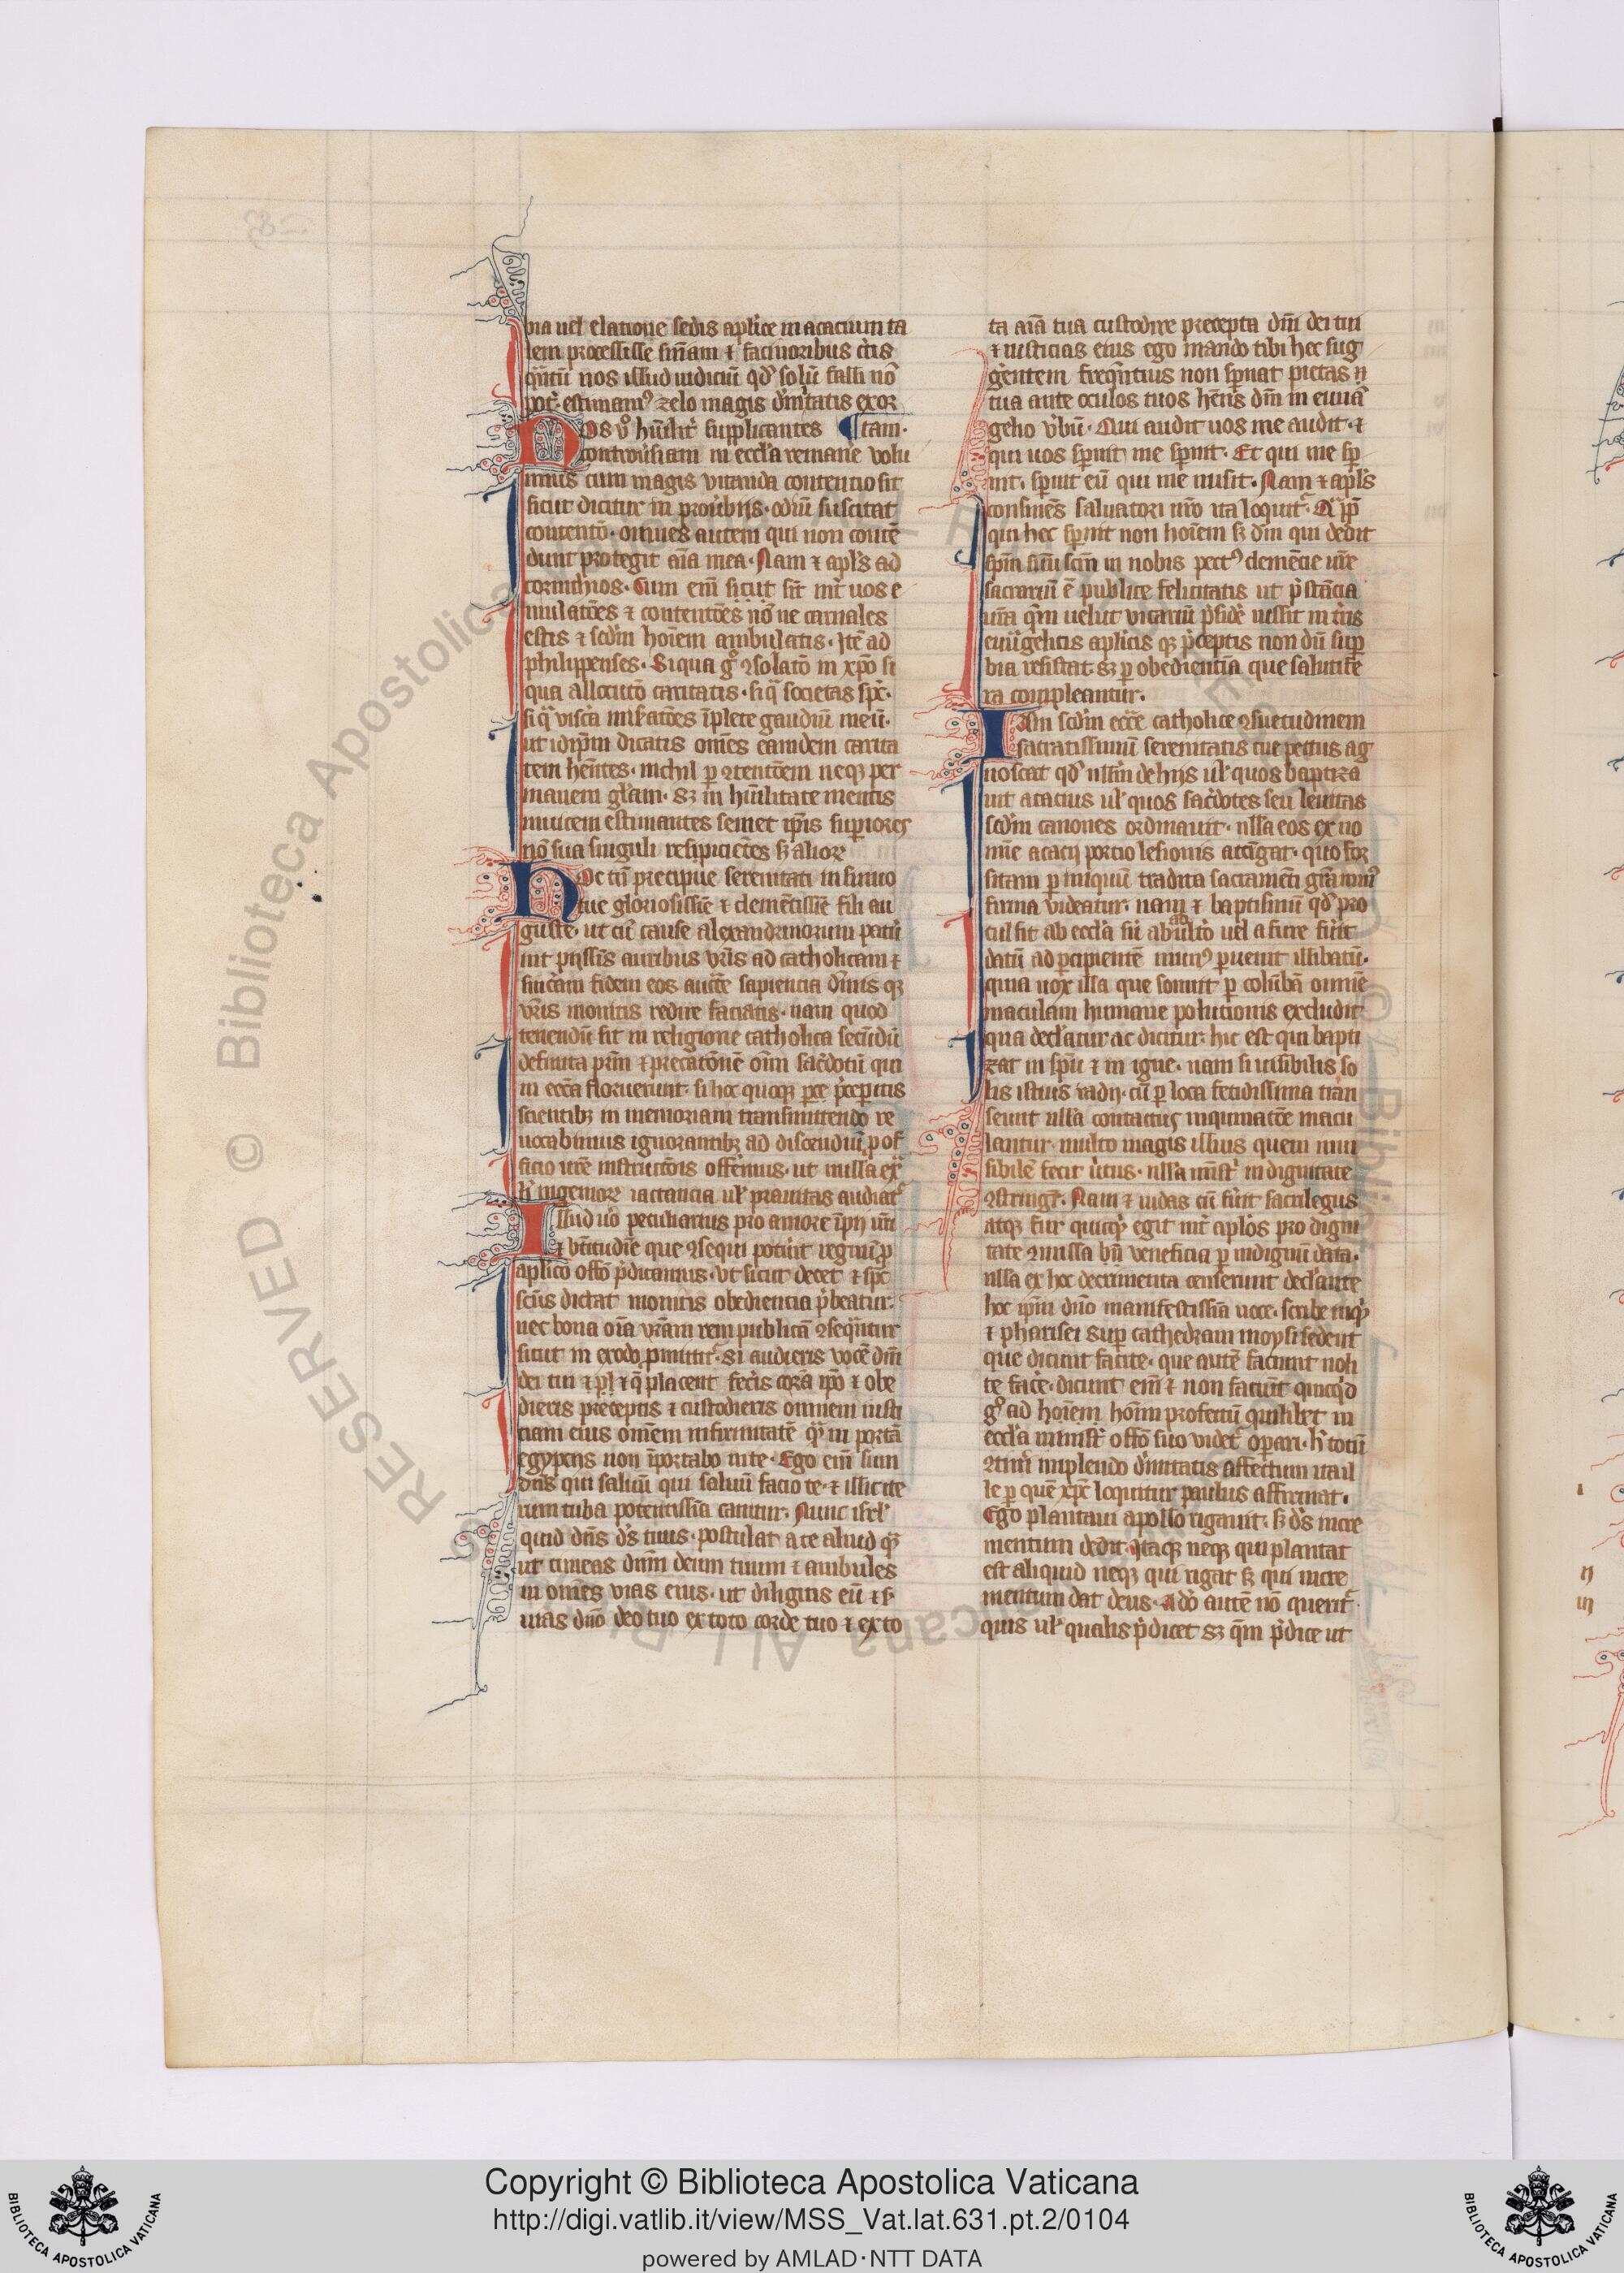 bia uel elatione sedis aplice in acacium ta
lem processisse sn̄iam ⁊ facinoribus c̄tis
qn̄tū nos illud iudiciū qd̓ solū falli nō
pot̓ estimam᷒ zelo magis diuitatis exor
Nos v̊ hūilit̓ supplicantes ¶ tam.
controu̓siam in ecc̄la remane᷑ volu
mus cum magis vitanda contentio sit
sicut dicitur in prou̓bijs. odiū suscitat
contentō. omnes autem qui non contē
dunt protegit aīa mea. Nam ⁊ apl̓s ad
corinthios. Cum enī sicut sīt int̓ uos e
mulatōes ⁊ contentōes nō ne carnales
estis ⁊ scd̓m hoīem ambulatis. Itē ad
philippenses. Siqua g̊ ꝯsolatō in xp̄o si
qua allocutō caritatis. siq̄ societas sp̄c.
si q̄ visc̓a mis̓atōes īplete gaudiū meū.
ut idip̄m dicatis om̄es eamdem carita
tem hēntes. nichil p ꝯtentōem neqꝫ per
inanem gl̓am. sꝫ in hūilitate mentis
inuicem estimantes semet ip̄is superiores
nō sua singuli respicientes sꝫ alior̄
Hoc tn̄ precipue serenitati insinuo
tue gloriosissīe ⁊ clemētissīe fili au
guste. ut cū cause alexandrinorum patu̓
int pijssīis auribus vr̄is ad catholicam ⁊
sinc̓am fidem eos auctē sapiencia diuīs qꝫ
vr̄is monitis redire faciatis. nam quod
tenendū sit in religione catholica secūdū
definita pr̄m ⁊ precatōnē om̄ sac̓dotū qui
in eccl̓a floruerunt. si hoc quoqꝫ pr̄ce p̓ceperitis
scientibꝫ in memoriam transmittendo re
uocabimus ignorantibꝫ ad discendū p of
ficio nr̄e instructōis offerimus. ut nulla ex
h̓ ingenior̄ iactancia ul̓ prauitas audiat᷑
Illud u̓o peculiarius pro amore īpij vr̄i
⁊ btitudīe que ꝯsequi potu̓it regnū p
aplico offō p̓dicamus. vt sicut decet ⁊ sp̄c
scūs dictat monitis obedientia p̓beatur.
nec bona oīa vr̄am rem publicā ꝯsequntur
sicut in exodo p̓mittit᷑. Si audieris vocē dn̄i
dei tui ⁊ pl̓ ⁊ q̄ placent fec̓is corā ip̄o ⁊ obe
dieris preceptis ⁊ custodieris omnem iusti
ciam eius om̄em infirmitatē q̄ in portā
egypcijs non īportabo in te. Ego enī sum
dn̄s qui saluū qui saluū facio te. ⁊ illic ite
rum tuba potentissīa canitur. Nunc isrl̓
quid dn̄s d̓s tuus. postulat a te aliud q̄ꝫ
ut timeas dn̄m deum tuum ⁊ ambules
in om̄es vias eius. ut diligitis eū ⁊ s̓
uias dn̄o deo tuo ex toto corde tuo ⁊ ex to
ta aīa tua custodire precepta dn̄i dei tui
⁊ iusticias eius ego mando tibi hec sug
gerentem freqn̄tius non sp̓nat pietas n̄
tua ante oculos tuos hēns dn̄i in euuā
gelio v̓bū. Qui audit uos me audit. ⁊
qui uos sp̓nit me sp̓nit. Et qui me sp̓
nit. sp̓nit eū qui me misit. Nam ⁊ apl̓s
consinēs saluatori nr̄o ita loquit᷑. Q̄ pp̄
qui hec sp̓nit non hoīem sꝫ dn̄m qui dedit
sp̄m suū scm̄ in nobis pect᷒ clemēcie ur̄e
sacrariū ē publice felicitatis ut p̓ stācia
ur̄a q̄m uelut vicariū p̓sid̓e iussit in t̓ris
euū̄gelicis aplicis qꝫ p̓ceptis non du̓ sup
bia resistat. sꝫ p obedientiā que salutife
ra compleantur.
Iam scd̓m ecc̄e catholice ꝯsuetudinem
sacratissimū serenitatis tue pectus ag
noscat qd̓ ullm̄ de hijs ul̓ quos baptiza
uit acacius ul̓ quos sac̓dotes seu leuitas
scd̓m canones ordinauit. ulla eos ex no
mīe acacij portio lesionis attīgat. quo for
sitam p iniquū tradita sacramēti gr̄a mīn
firma videatur. nam ⁊ baptismū qd̓ pro
cul sit ab eccl̓a siu ab adult̓o uel a fure fu̓it
datū ad p̓cipientē mun᷒ p̓uenit illibatū.
quia uox illa que sonuit p colūbā om̄nē
maculam humane polutionis excludit
qua decl̓atur ac dicitur: hic est qui bapti
zat in sp̄u ⁊ in igne. nam si uisibilis so
lis istius radij. cū p loca fetidissima tran
seunt ulla contactus inquinatōe macu
lantur. multo magis illius quem inui
sibilē fecit u̓tus. ulla mīst̓ indignitate
ꝯstringit᷑. Nam ⁊ iudas cū fu̓it sacrilegus
atqꝫ fur quicq̓ egit int̓ apl̓os pro digni
tate ꝯmissa bn̄ veneficia p indignū data.
ulla ex hoc decrimenta censerunt decl̓ante
hoc ip̄m dn̄o manifestissīa uoce. scribe inq̓
⁊ pharisei sup cathedram moysi sedent
que dicunt facite. que autē faciunt noli
te fac̓e. dicunt enī ⁊ non faciūt quicq̓d
g̊ ad hoīem hoīm profectū quilibet in
eccl̓a minist̓ offō suo videt᷑ op̓ari. h̓ totū
ꝯtin̓i implendo diuitatis affectum ita il
le p quē xp̄c loquitur paulus affirmat.
Ego plantaui apollo rigauit. sꝫ d̓s incre
mentum dedit. Itaqꝫ neqꝫ qui plantat
est aliquid neqꝫ qui rigat sꝫ qui incre
mentum dat deus. ado᷑ autē nō querit᷑
quis ul̓ qualis p̓dicet sꝫ q̄m p̓dicet ut
Copyright © Biblioteca Apostolica Vaticana
http://digi.vatlib.it/view/MSS_Vat.lat.631.pt.2/0104
powered by AMLAD·NTT DATA
BIBLIOTECA APOSTOLICA VATICANA
BIBLIOTECA APOSTOLICA VATICANA